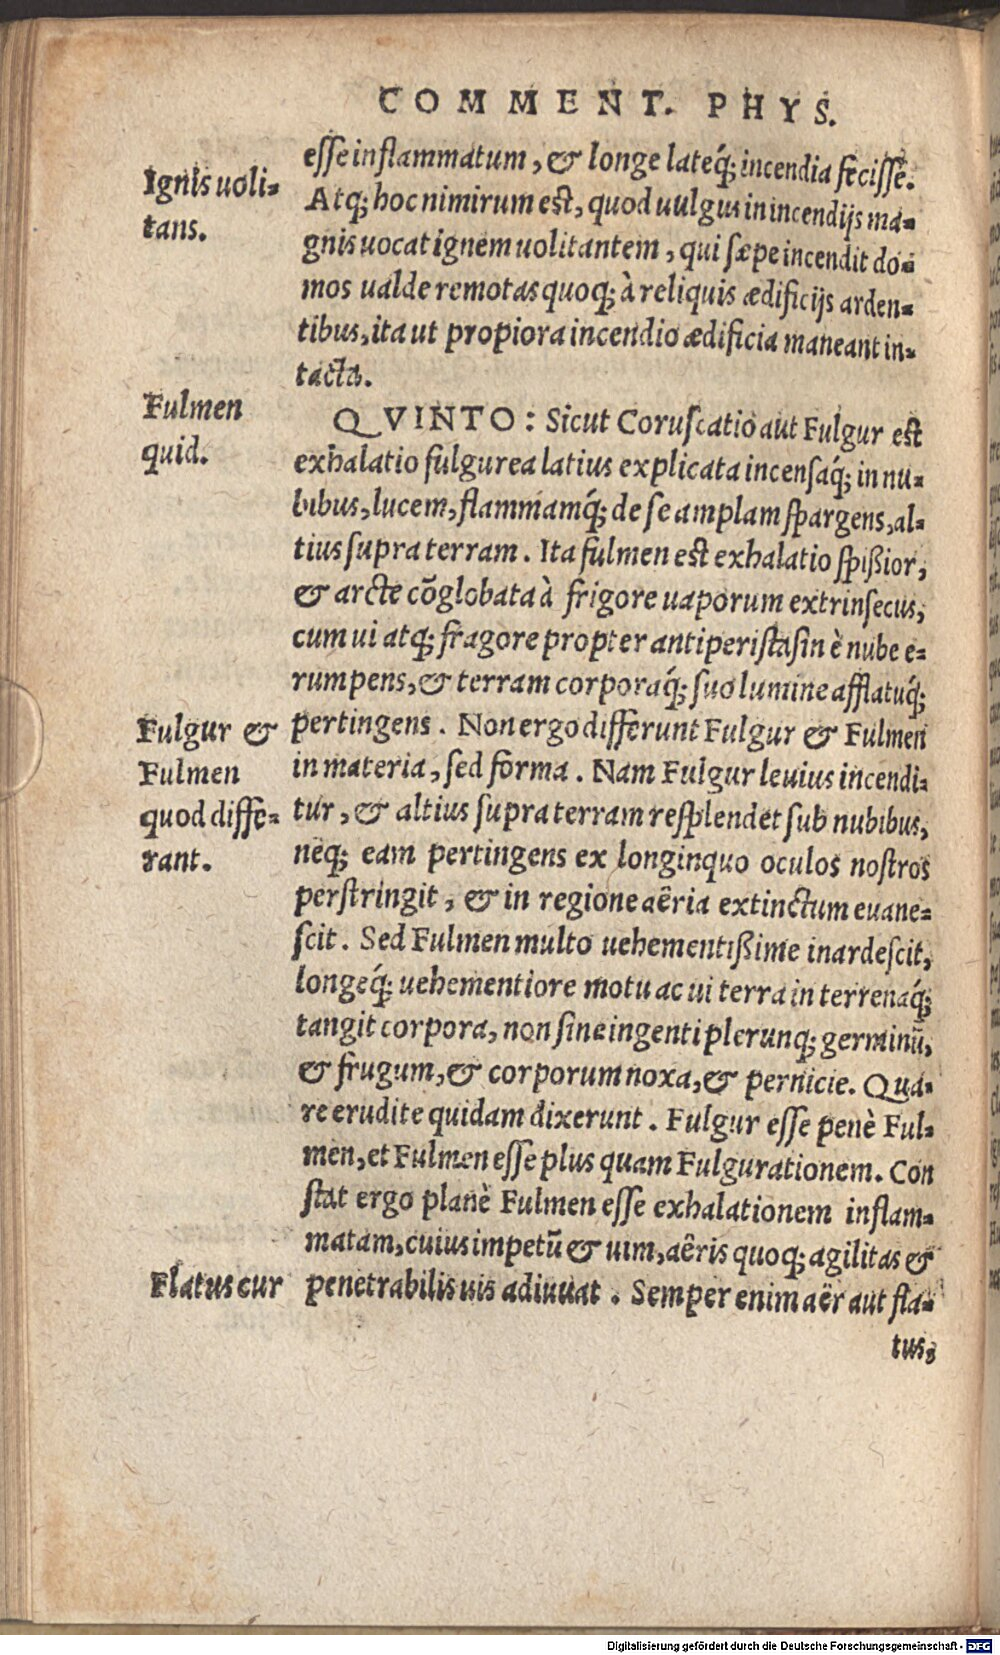 COMMENT. PHYS.
Ignis uoli-
tans.
esse inflammatum, & longe lateq́; incendia fecisse.
Atq; hoc nimirum est, quod uulgus in incendijs ma-
gnis uocat ignem uolitantem, qui sæpe incendit do-
mos ualde remotas quoq; à reliquis ædificijs arden-
tibus, ita ut propiora incendio ædificia maneant in-
tacta.
Fulmen
quid.
QVINTO: Sicut Coruscatio aut Fulgur est
exhalatio fulgurea latius explicata incensaq́; in nu-
bibus, lucem, flammamq́; de se amplam spargens, al-
tius supra terram. Ita fulmen est exhalatio spißior,
& arcte cōglobata à frigore uaporum extrinsecus,
cum ui atq; fragore propter antiperistasin è nube e-
rumpens, & terram corporaq́; suo lumine afflatuq́;
Fulgur &
Fulmen
quod diffe-
rant.
pertingens. Non ergo differunt Fulgur & Fulmen
in materia, sed forma. Nam Fulgur leuius incendi-
tur, & altius supra terram resplendet sub nubibus,
neq; eam pertingens ex longinquo oculos nostros
perstringit, & in regione aëria extinctum euane-
scit. Sed Fulmen multo uehementißime inardescit,
longeq́; uehementiore motu ac ui terra in terrenaq́;
tangit corpora, non sine ingenti plerunq; germinū,
& frugum, & corporum noxa, & pernicie. Qua-
re erudite quidam dixerunt. Fulgur esse penè Ful-
men, et Fulmen esse plus quam Fulgurationem. Con
stat ergo planè Fulmen esse exhalationem inflam-
matam, cuius impetū & uim, aëris quoq; agilitas &
Flatus cur
penetrabilis uis adiuuat. Semper enim aër aut fla-
tus,
Digitalisierung gefördert durch die Deutsche Forschungsgemeinschaft - DFG